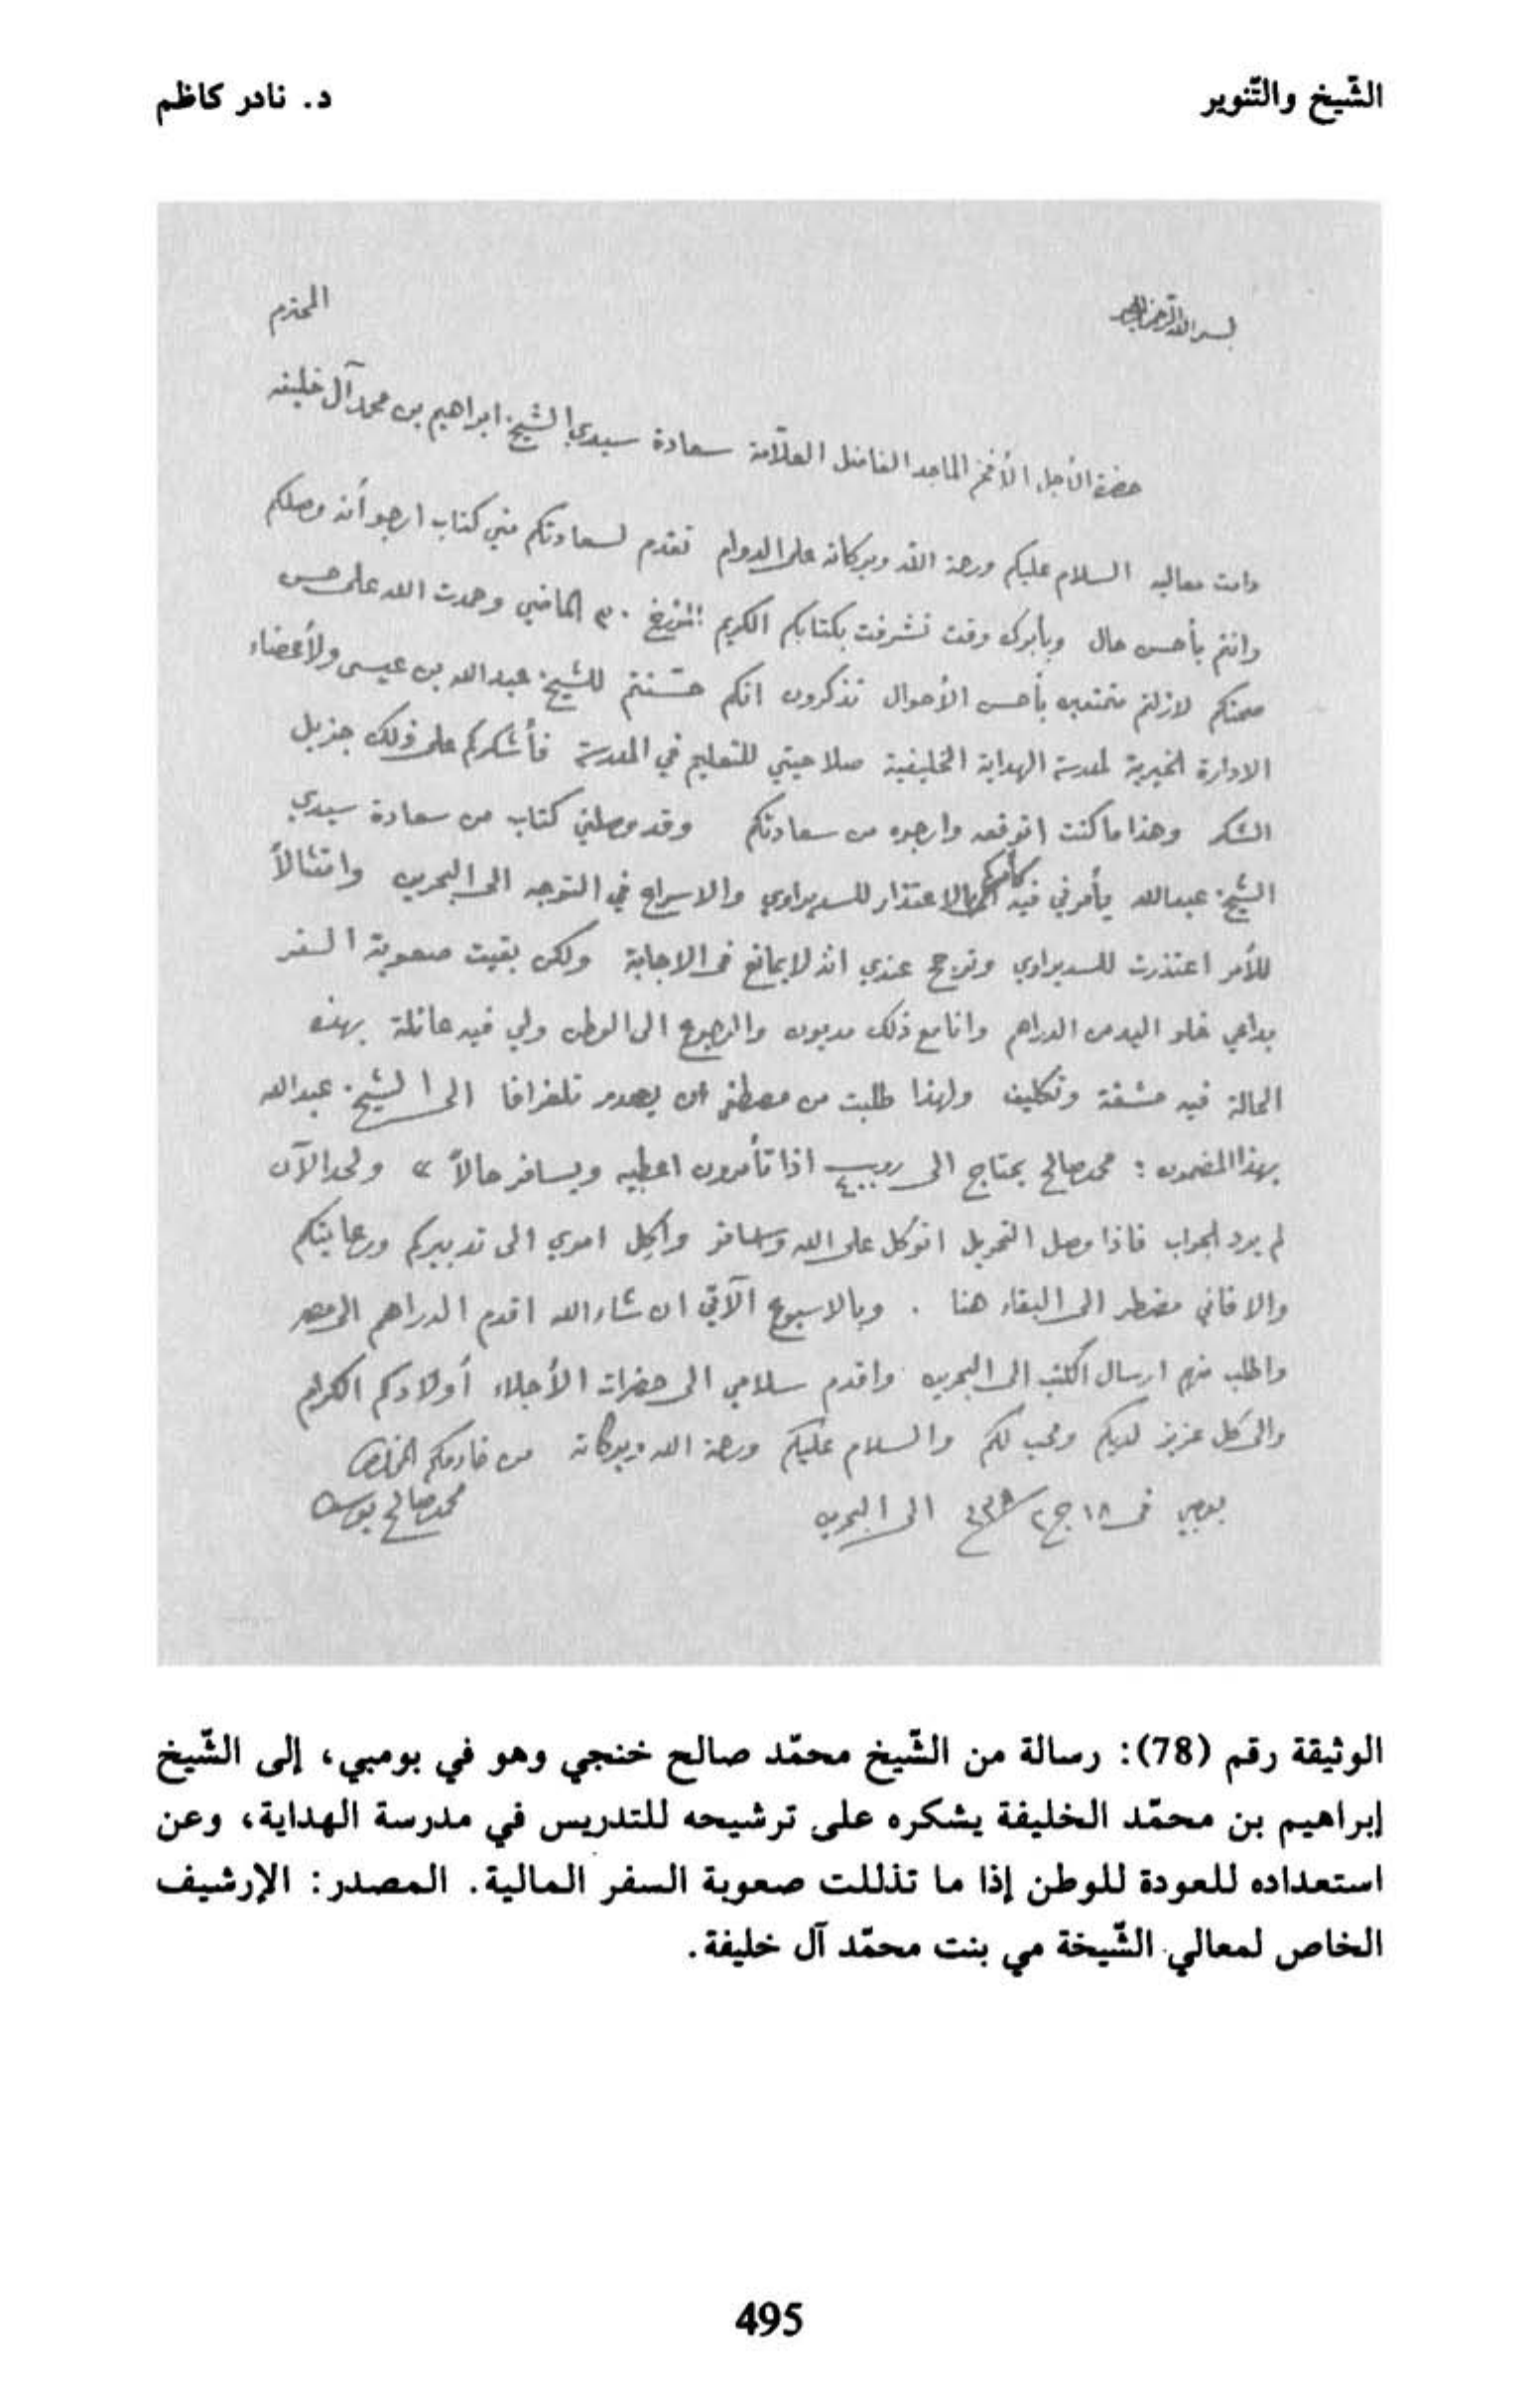 الشّيخ والتّنوير
د. نادر كاظم
بسم الله الرحمن الرحيم
المحترم
حضرة الأجل الأفخم الماجد الفاضل العلّامة سعادة سيدي الشيخ ابراهيم بن محمد آل خليفه
دامت معاليه السلام عليكم ورحمة الله وبركاته على الدوام تقدم لسعادتكم مني كتاب ارجو أنه وصلكم
وانتم بأحسن حال وبأبرك وقت تشرفت بكتابكم الكريم المؤرخ ٣٠ الماضي وحمدت الله على حسن
صحتكم لازلتم متمتعين بأحسن الأحوال تذكرون انكم حسّنتم للشيخ عبدالله بن عيسى ولأعضاء
الادارة الخيرية لمدرسة الهداية الخليفية صلاحيتي للتعليم في المدرسة فأشكركم على ذلك جزيل
الشكر وهذا ما كنت اتوقعه وارجوه من سعادتكم وقد وصلني كتاب من سعادة سيدي
الشيخ عبدالله يأمرني فيه كأمركم بالاعتذار للسديراوي والاسراع في التوجه الى البحرين وامتثالاً
للأمر اعتذرت للسديراوي وترجح عندي انه لا يمانع في الاجابة ولكن بقيت صعوبة السفر
بداعي خلو اليد من الدراهم وانا مع ذلك مديون والرجوع الى الوطن ولي فيه عائلة بهذه
الحالة فيه مشقة وتكليف ولهذا طلبت من مصطفى ان يصدر تلغرافا الى الشيخ عبدالله
بهذا المضمون : محمد صالح يحتاج الى روبيه ٤٠٠ اذا تأمرون اعطيه ويسافر حالاً » ولحد الآن
لم يرد الجواب فاذا وصل التحويل اتوكل على الله وسافر واكل امري الى تدبيركم ورعايتكم
والا فاني مضطر الى البقاء هنا . وبالاسبوع الآتي ان شاء الله اقدم الدراهم الى مصر
واطلب منهم ارسال الكتب الى البحرين واقدم سلامي الى حضرات الأجلاء أولادكم الكرام
والى كل عزيز لديكم ومحب لكم والسلام عليكم ورحمة الله وبركاته من خادمكم المخلص
محمد صالح يوسف
بمبي في ١٨ ج٢ ٣٣٨ الى البحرين
الوثيقة رقم (78): رسالة من الشّيخ محمّد صالح خنجي وهو في بومبي، إلى الشّيخ
إبراهيم بن محمّد الخليفة يشكره على ترشيحه للتدريس في مدرسة الهداية، وعن
استعداده للعودة للوطن إذا ما تذللت صعوبة السفر المالية. المصدر: الإرشيف
الخاص لمعالي الشّيخة مي بنت محمّد آل خليفة.
495